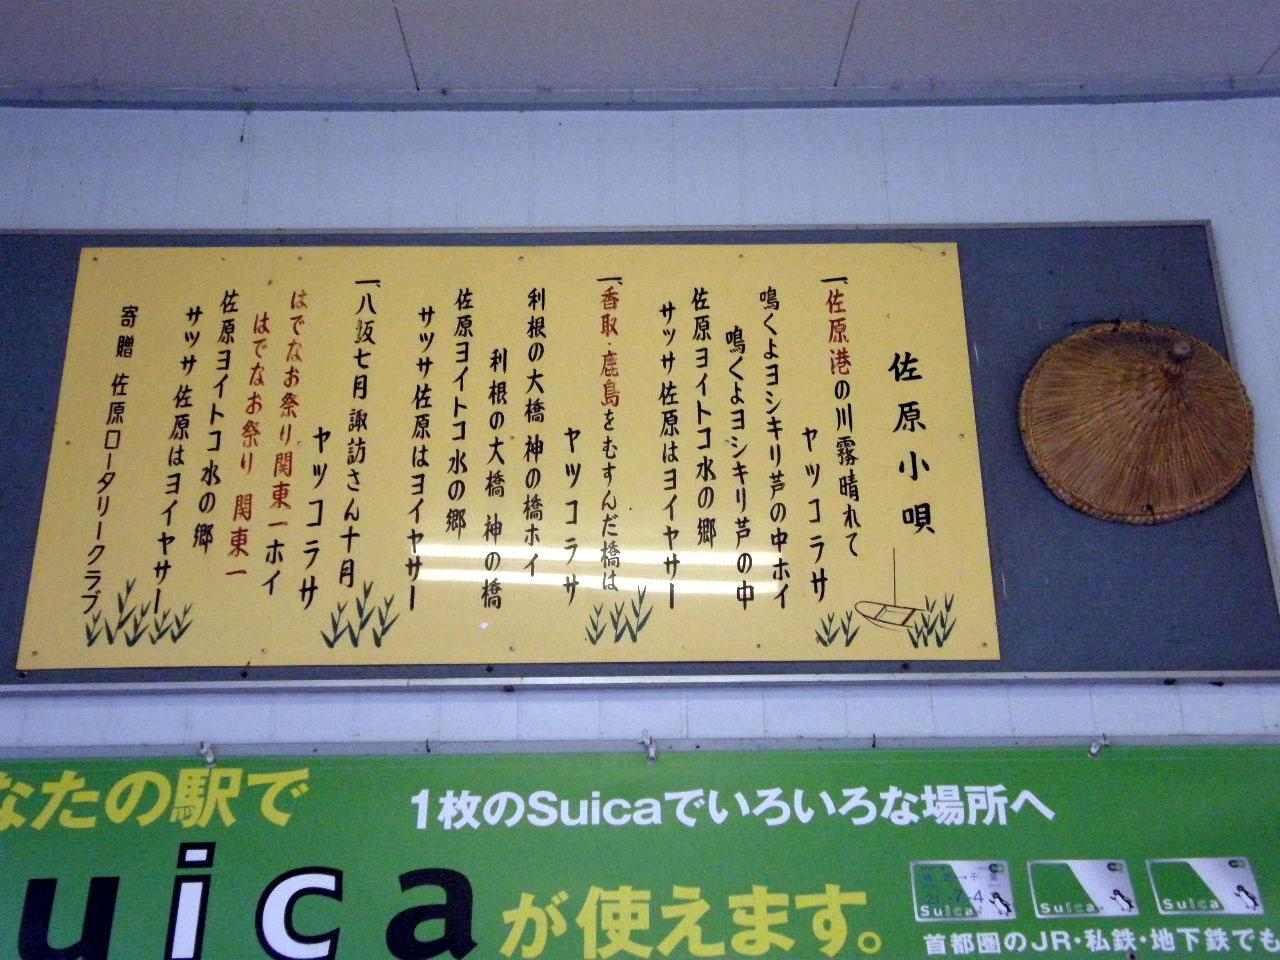 佐原小唄
一、佐原港の川霧晴れて
ヤツコラサ
鳴くよヨシキリ芦の中ホイ
鳴くよヨシキリ芦の中
佐原ヨイトコ水の郷
サツサ佐原はヨイヤサー
一、香取・鹿島をむすんだ橋は
ヤツコラサ
利根の大橋神の橋ホイ
利根の大橋 神の橋
佐原ヨイトコ水の郷
サツサ佐原はヨイヤサー
一、八坂七月諏訪さん十月
ヤツコラサ
はでなお祭り関東一ホイ
はでなお祭り 関東一
佐原ヨイトコ水の郷
サツサ佐原はヨイヤサー
寄贈 佐原ロータリークラブ
なたの駅で
1枚のSuicaでいろいろな場所へ
uicaが使えます。
Suica
Suica
Suica
首都圏のJR・私鉄・地下鉄でも